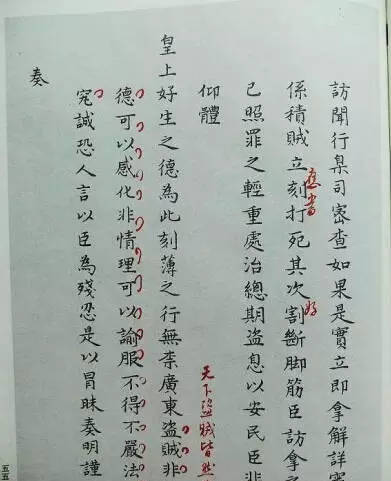 訪聞行臬司密查如果是實立即拿解詳
係積賊立刻打死其次割斷脚筋臣訪拿
應當
好
已照罪之輕重處治總期盗息以安民臣非
仰體
天下盗賊皆然
皇上好生之德為此刻薄之行無柰廣東盗賊非
德可以感化非情理可以諭服不得不嚴法
究誠恐人言以臣為殘忍是以冒昧奏明謹
奏
五五